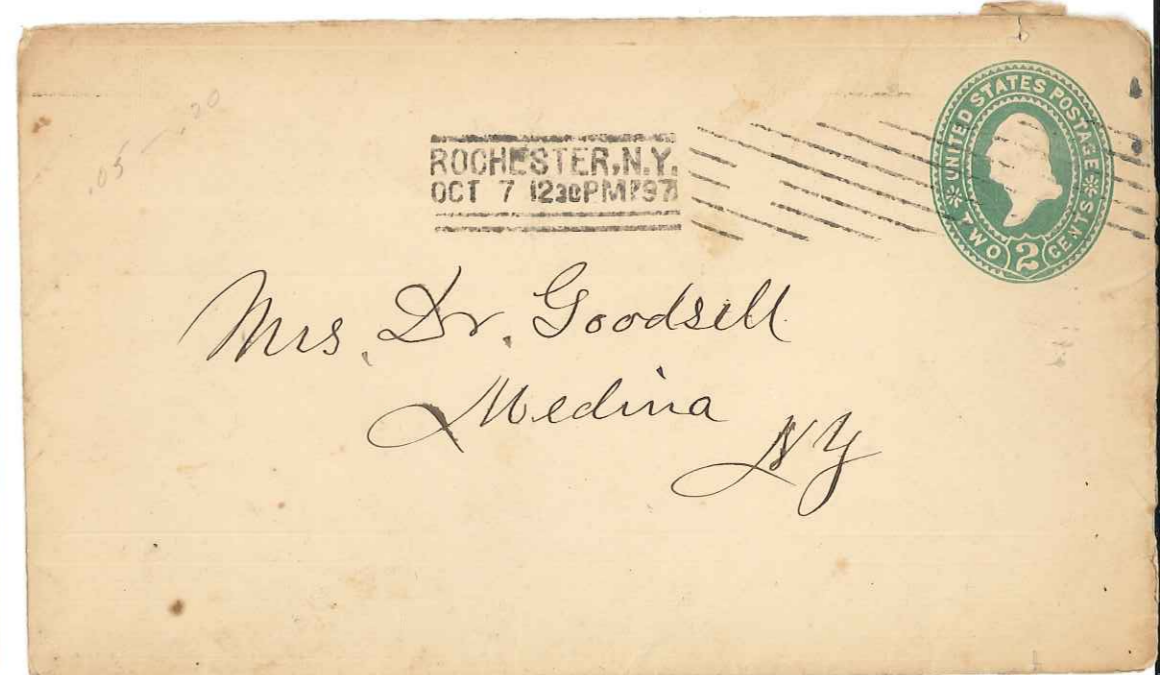 .05 - .20
ROCHESTER, N.Y.
OCT 7 1230PM '97
UNITED STATES POSTAGE
TWO 2 CENTS
Mrs. Dr. Goodsell
Medina
NY